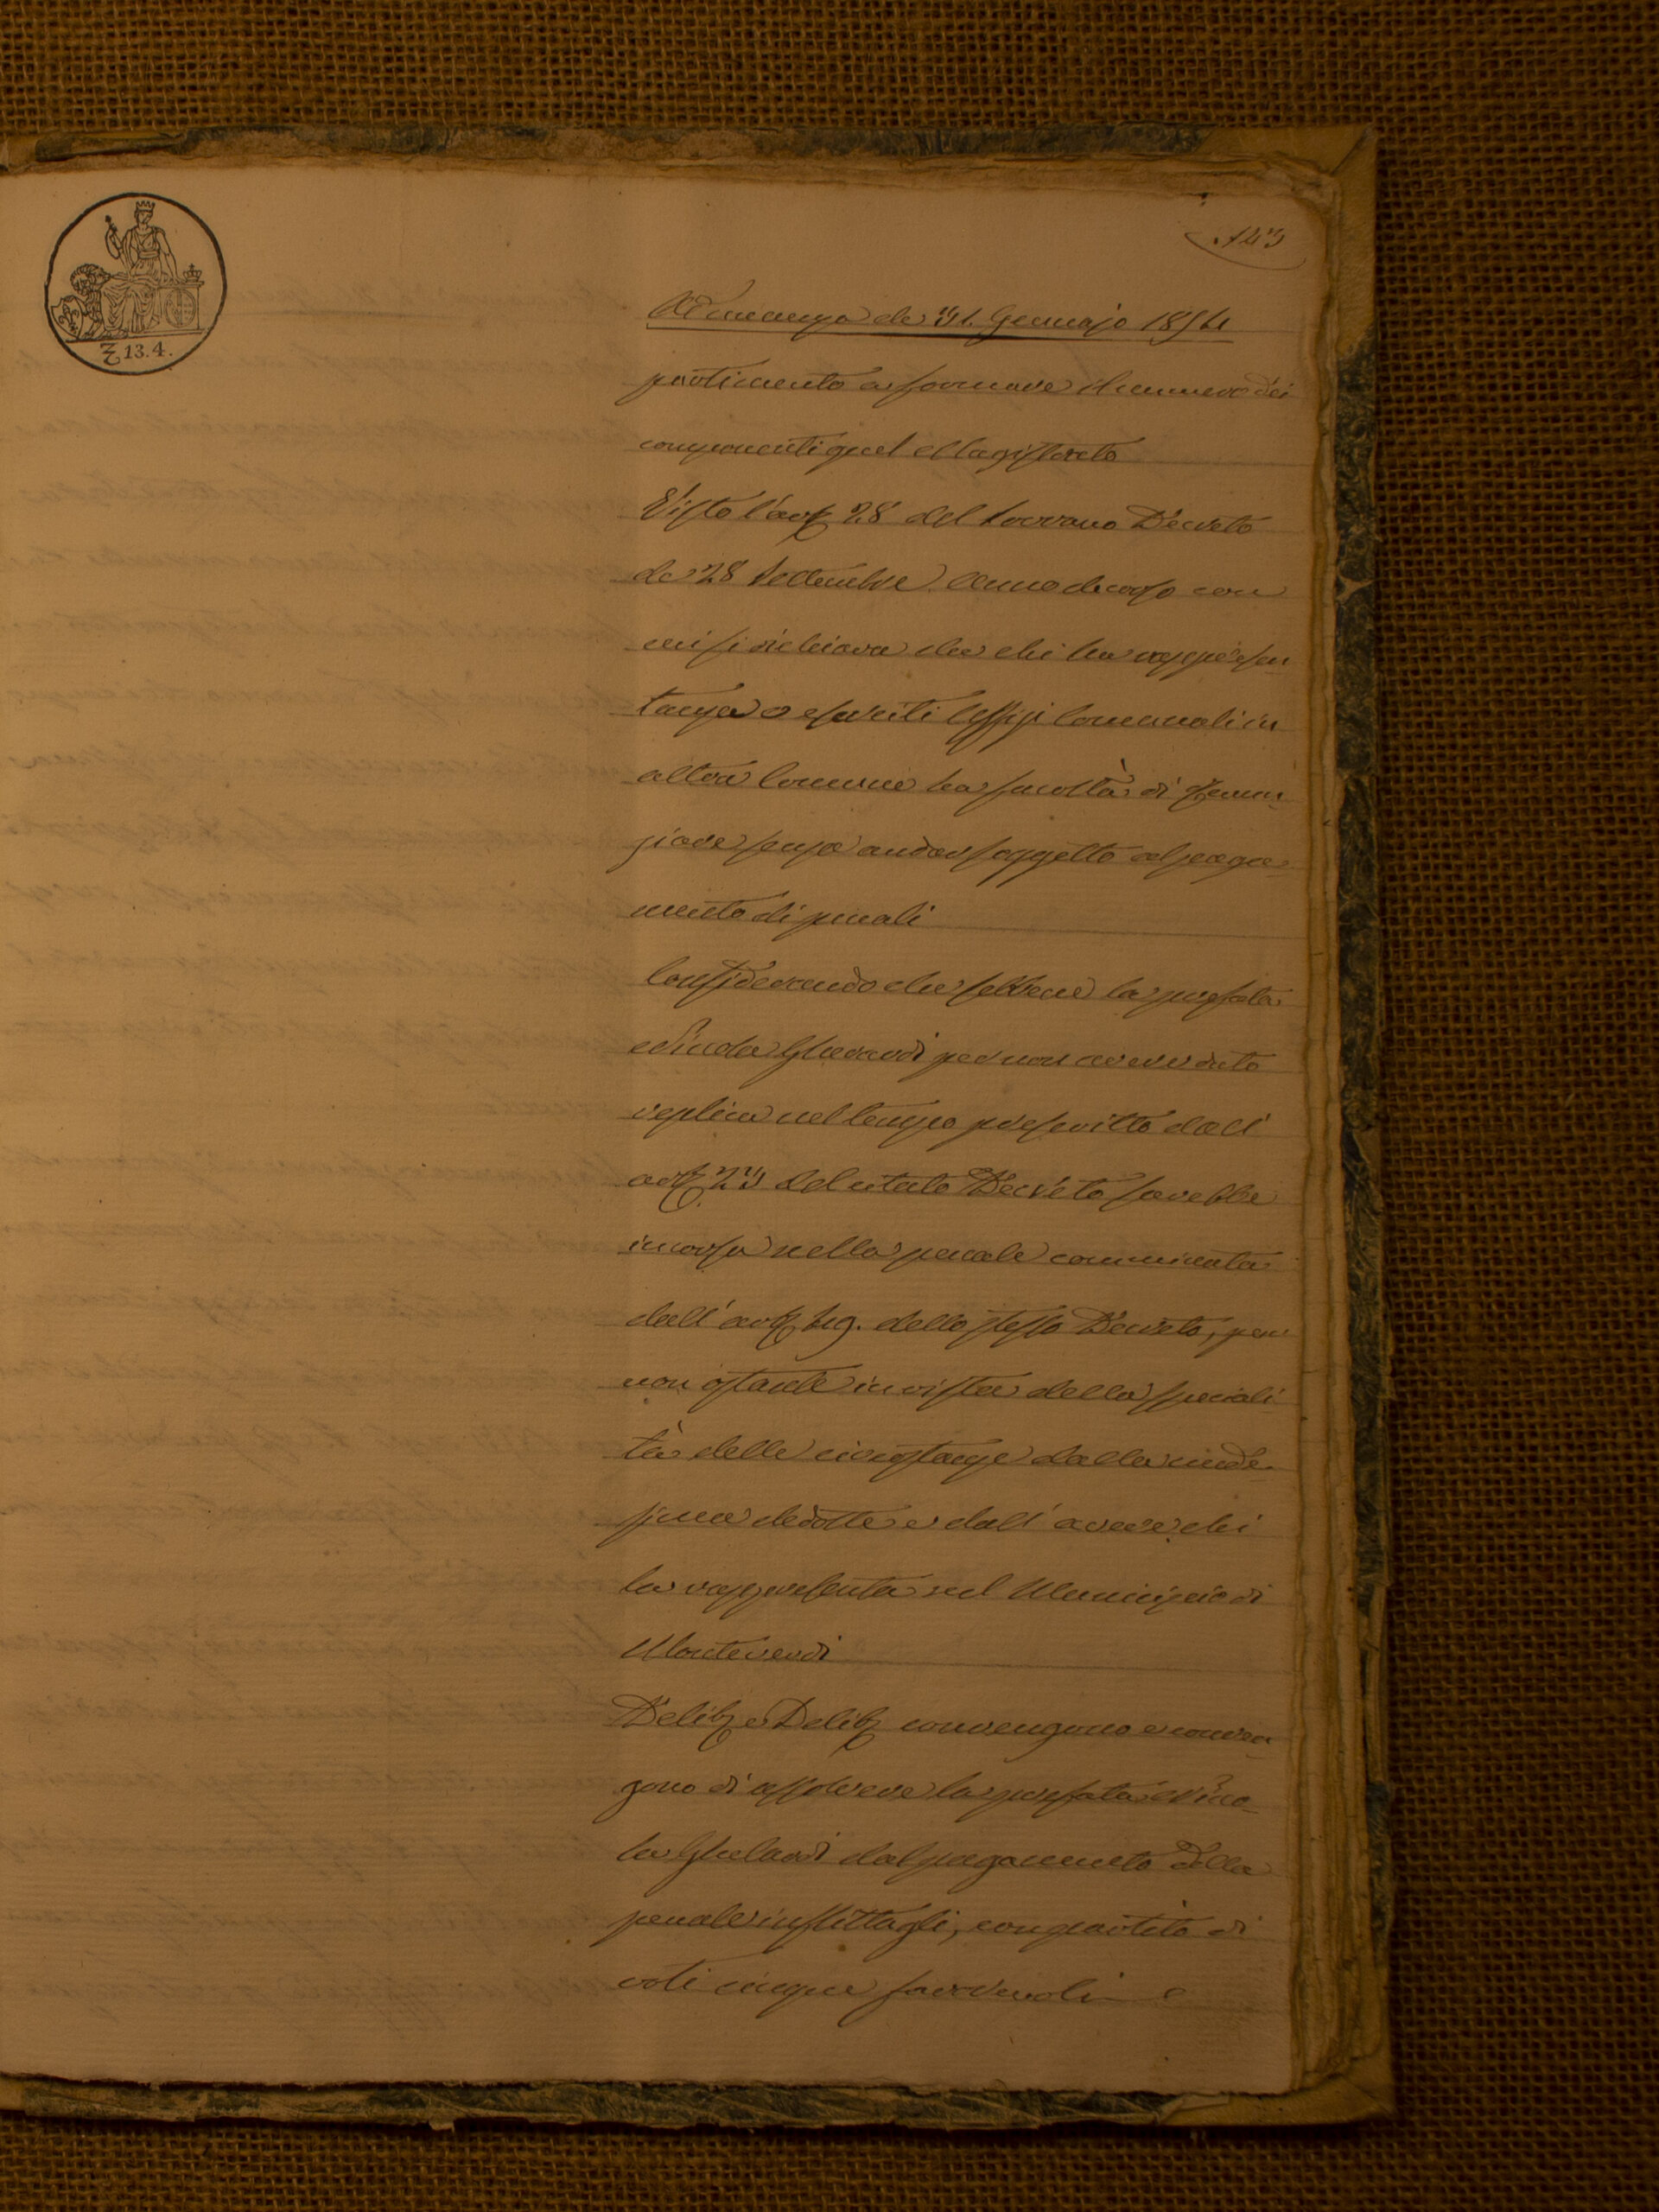 13.4.
Adunanza de 31. Gennajo 1854
partimento a formare il numero dei
componenti quel Magistrato
Visto l'art. 28 del Sovrano Decreto
de 28 Settembre Anno decorso con
cui si dichiara che chi ha rappresen
tanza o eserciti Uffizi Comunali in
altra Comune ha facoltà di renun
ziare senza andar soggetto al paga
mento di penali
Considerando che sebbene la prefata
Gherardi per non avere data
replica nel tempo prescritto dall'
art. 23 del citato Decreto sarebbe
incorsa nella penale comminata
dall' art. 49. dello stesso Decreto, pur
non ostante in vista della speciali
tà delle circostanze dalla mede
sima dedotte e dall' avere chi
la rappresenta nel Municipio di
Monteverdi
Delib. e Delib. convengono e conven
gono di assolvere la prefata
dal pagamento della
penale inflittagli, con partito di
voti cinque favorevoli